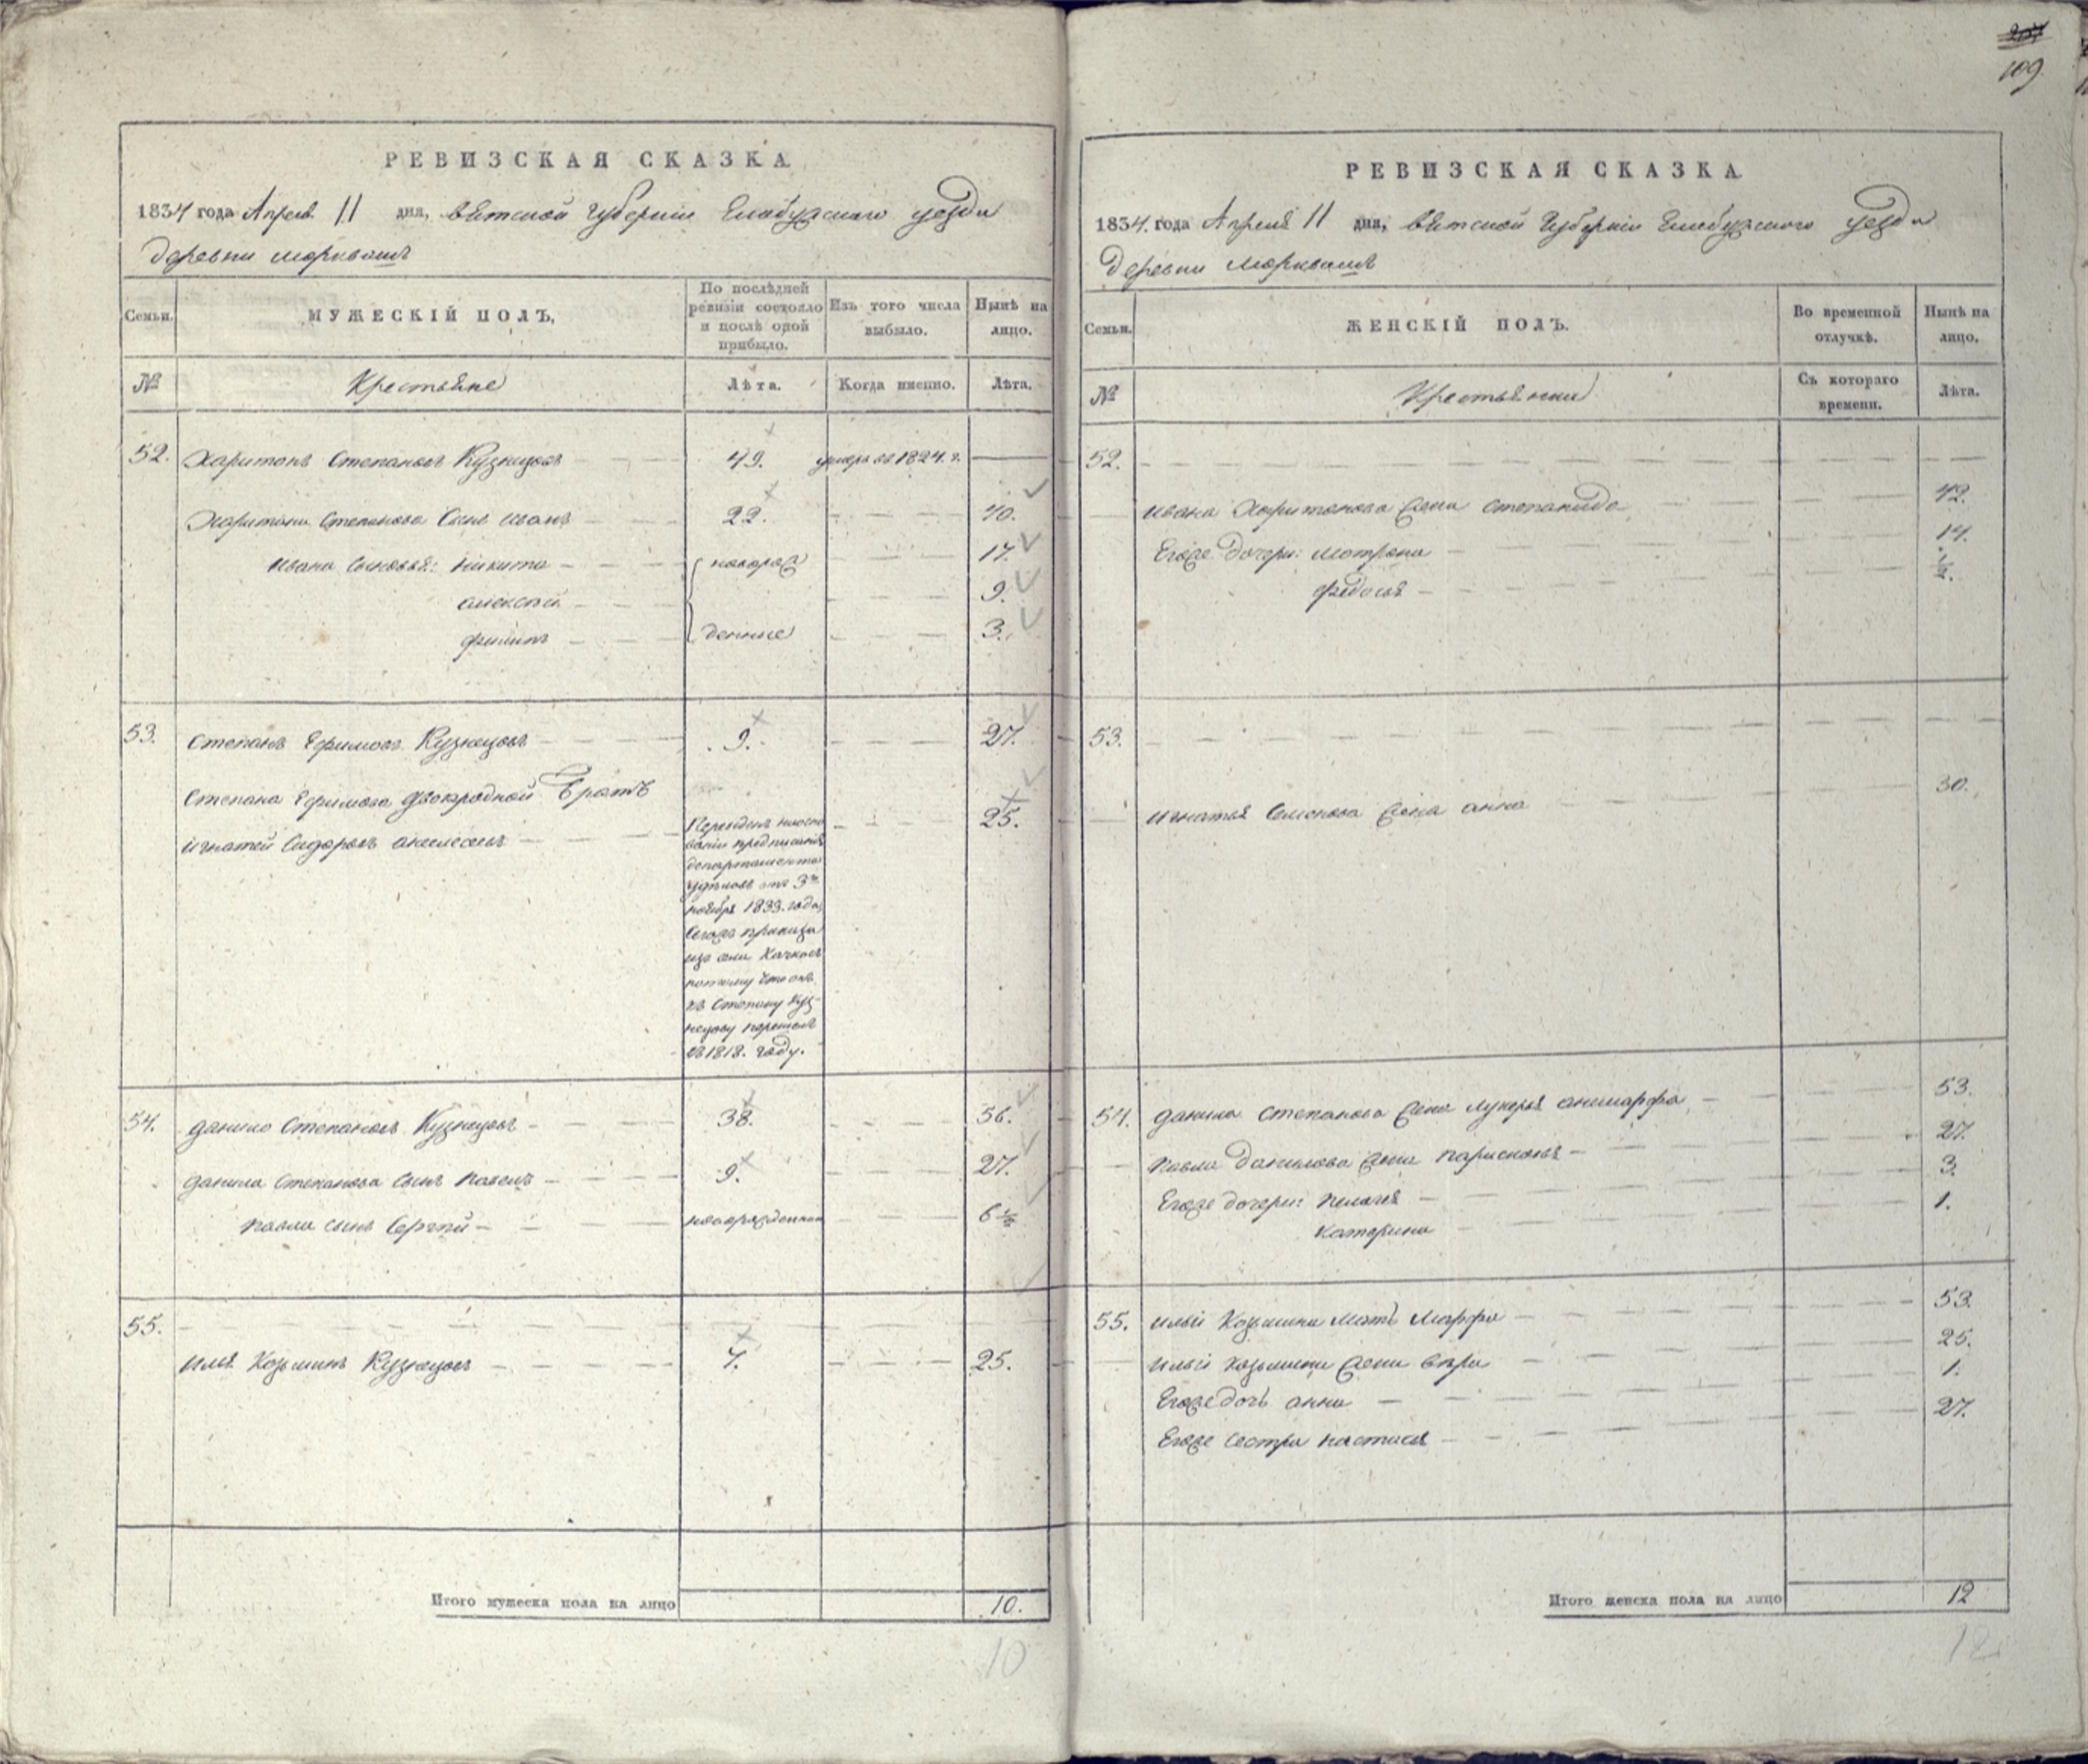 109
РЕВИЗСКАЯ СКАЗКА
1834 года Апреля 11 дня, Вятской Губернiи Елабужского уезда
деревни Морквашъ
Семьи.
МУЖЕСКIЙ ПОЛЪ,
По послѣдней ревизiи состояло и послѣ оной прибыло.
Изъ того числа выбыло.
Нынѣ на лицо.
№
Крестьяне
Лѣта.
Когда именно.
Лѣта.
52. Харитонъ Степановъ Кузнецовъ 49. умеръ въ 1824. г.
Харитона Степанова Сынъ Иванъ 22. 40.
Ивана Сыновья: Никита новорож 17.
Алексей 9.
Филипъ денные 3.
53. Степанъ Ефимовъ Кузнецовъ 9. 27.
Степана Ефимова двоюродной Братъ
Игнатей Сидоровъ 25.
предписанiя
департамента
удѣловъ отъ 3го
ноября 1833. года
потому что онъ
къ Степану Куз-
нецову перешелъ
въ 1818. году.
54. Данило Степановъ Кузнецовъ 38. 56.
Данила Степанова Сынъ Павелъ 9. 27.
Павла сынъ Сергѣй новорожденной 6 ½
55.
Илья Козьминъ Кузнецовъ 7. 25.
Итого мужеска пола на лицо 10.
10
РЕВИЗСКАЯ СКАЗКА
1834. года Апреля 11 дня, Вятской Губернiи Елабужского уезда
деревни Морквашъ
Семьи.
ЖЕНСКIЙ ПОЛЪ.
Во временной отлучкѣ.
Нынѣ на лицо.
№
Крестьянки
Съ котораго времени.
Лѣта.
52.
Ивана Харитонова жена Степанида 42.
Егоже дочери: Матрена 14.
Федосья ½.
53.
Игнатья жена Анна 30.
54. Данила Степанова жена Лукерья 53.
Павла Данилова жена Парасковья 27.
Егоже дочери: Пелагея 3.
Катерина 1.
55. Ильи Козьмина Мать Марфа 53.
Ильи Козьмина жена Вера 25.
Егоже дочь Анна 1.
Егоже сестра Настасья 27.
Итого женска пола на лицо 12
12